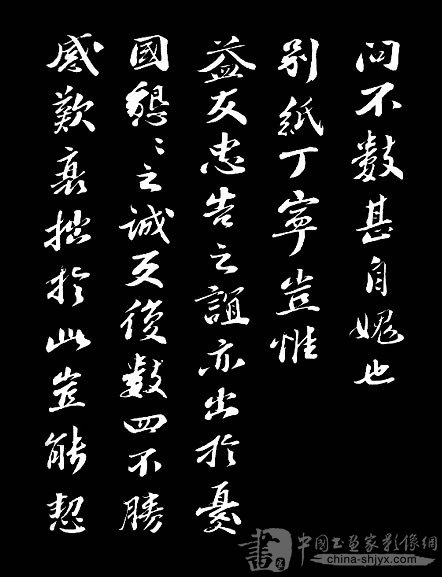 問不數甚自媿也
別紙丁寧豈惟
益友忠告之誼亦出於憂
國懇〻之誠反復數四不勝
感歎衰拙於此豈能恝
書
中國书画家影像網
china-shjyx.com